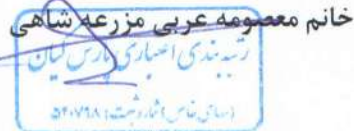 خانم معصومه عربی مزرعه شاهی
رتبه بندی اعتباری پارس کیان
(سهامی خاص) شماره ثبت: ۵۴۰۷۹۸